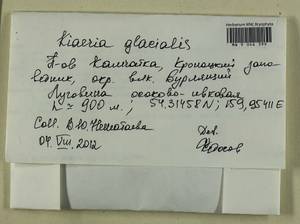 Herbarium MW, Bryophyta
Kiaeria glacialis
П-ов Камчатка, Кроноцкий запо-
ведник, окр. влк. Бурлящий
Луговина осоково-ивковая
h ≈ 900 м.; 54,31458 N; 159,95411 E
Coll. В.Ю. Нешатаева Det.
07.VIII.2012